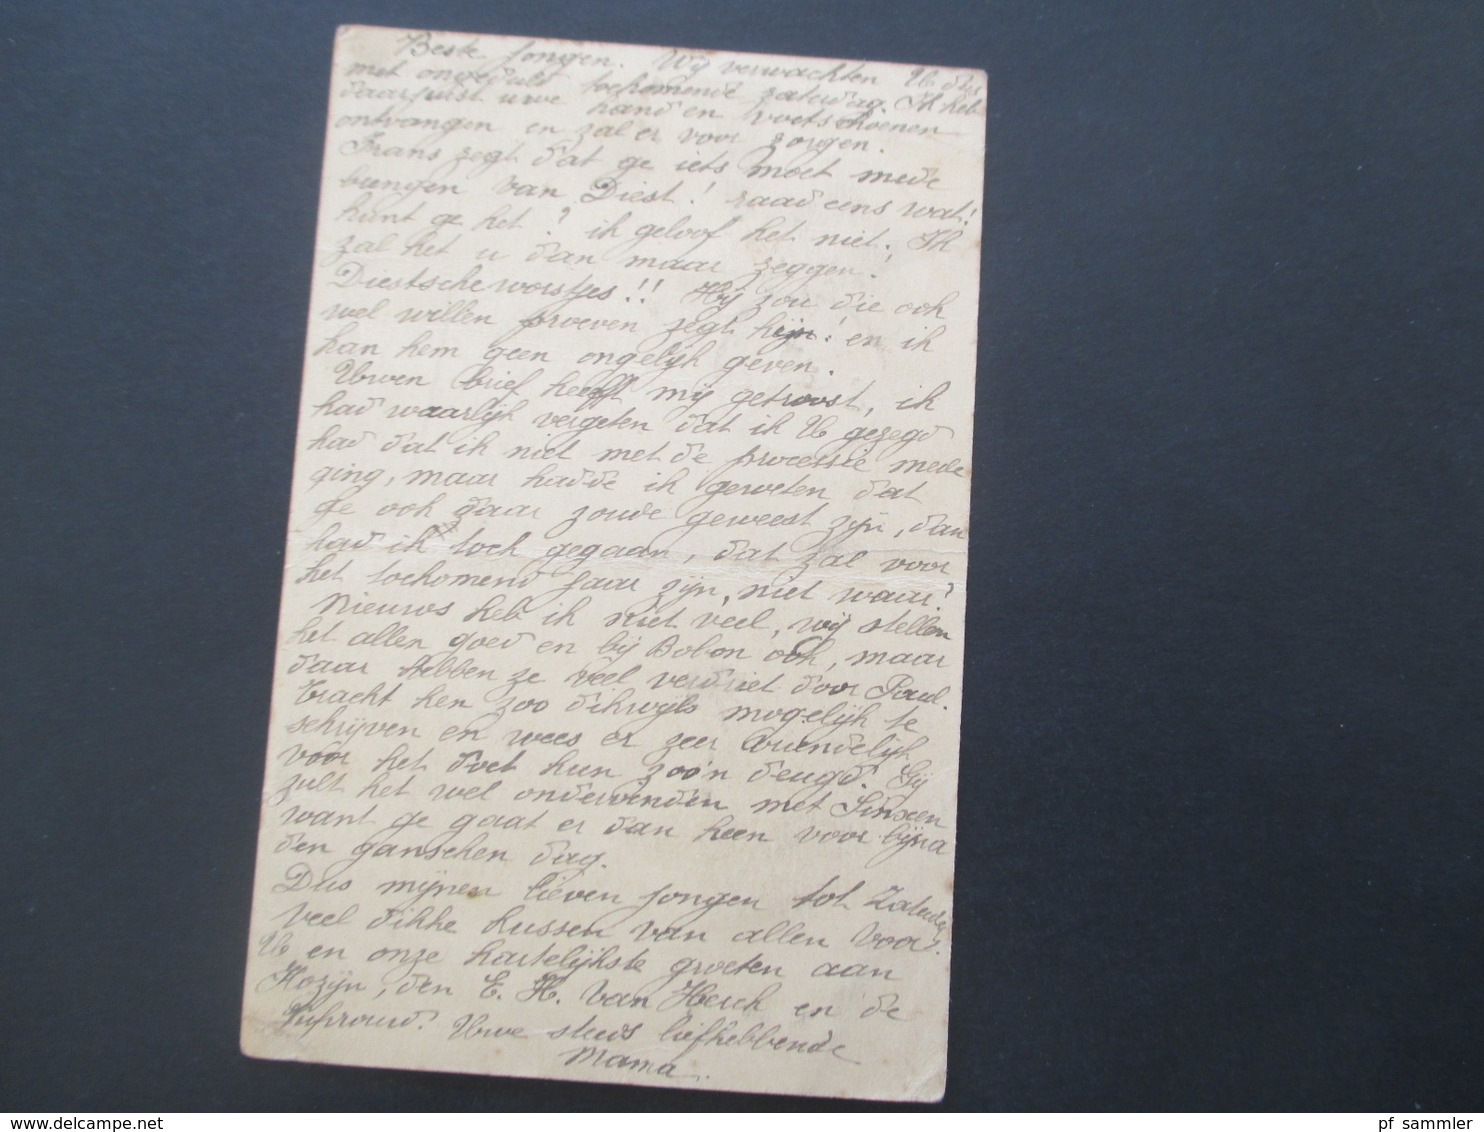 Beste Jongen. Wij verwachten U dus
met ongeduld toekomende zaterdag. Ik heb
daarjuist uwe hand en voetschoenen
ontvangen en zal er voor zorgen.
Frans zegt dat ge iets moet mede
brengen van Diest! raad eens wat!
kunt ge het? ik geloof het niet. Ik
zal het u dan maar zeggen!
Diestsche worstjes!! Hij zou die ook
wel willen proeven zegt hijn! en ik
kan hem geen ongelijk geven.
Uwen brief heeft mij getroost, ik
had waarlijk vergeten dat ik U gezegd
had dat ik niet met de processie mede
ging, maar hadde ik geweten dat
ge ook daar zoude geweest zijn, dan
had ik toch gegaan, dat zal voor
het toekomend jaar zijn, niet waar?
Nieuws heb ik niet veel, wij stellen
het allen goed en bij Bobon ook, maar
daar hebben ze veel verdriet door Paul.
Tracht hen zoo dikwijls mogelijk te
schrijven en wees er zeer vriendelijk
voor het doet hun zoo'n deugd. Gij
zult het wel ondervinden met Sinxen
want ge gaat er dan heen voor bijna
den ganschen dag.
Dus mijnen lieven jongen tot Zaterdag
veel dikke kussen van allen voor
U en onze hartelijkste groeten aan
Kozijn, den E. H. Van Hesch en de
Juffrouw. Uwe steeds liefhebbende
Mama.
pf sammler